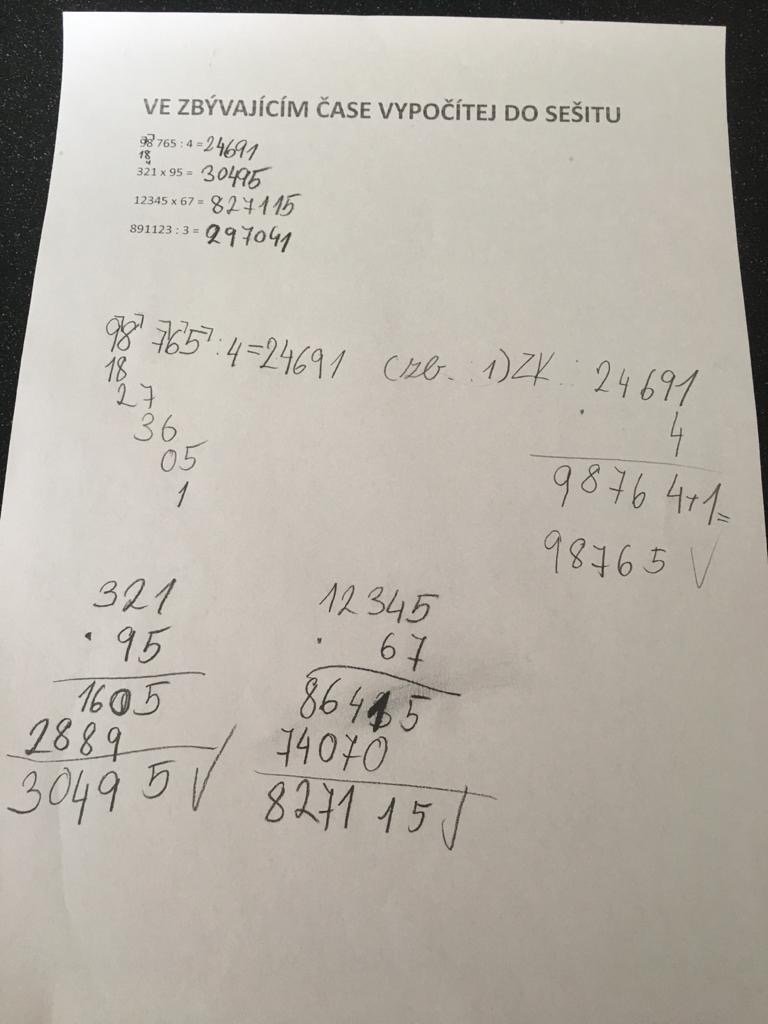 VE ZBÝVAJÍCÍM ČASE VYPOČÍTEJ DO SEŠITU
98 765 : 4 = 24691
18
4
321 x 95 = 30495
12345 x 67 = 827115
891123 : 3 = 297041
98 765 : 4 = 24691 (zb. : 1) ZK : 24691
18
· 4
27
36
05
98764+1=
1
98765 √
321
· 95
1605
2889
30495 √
12345
· 67
86415
74070
827115 √